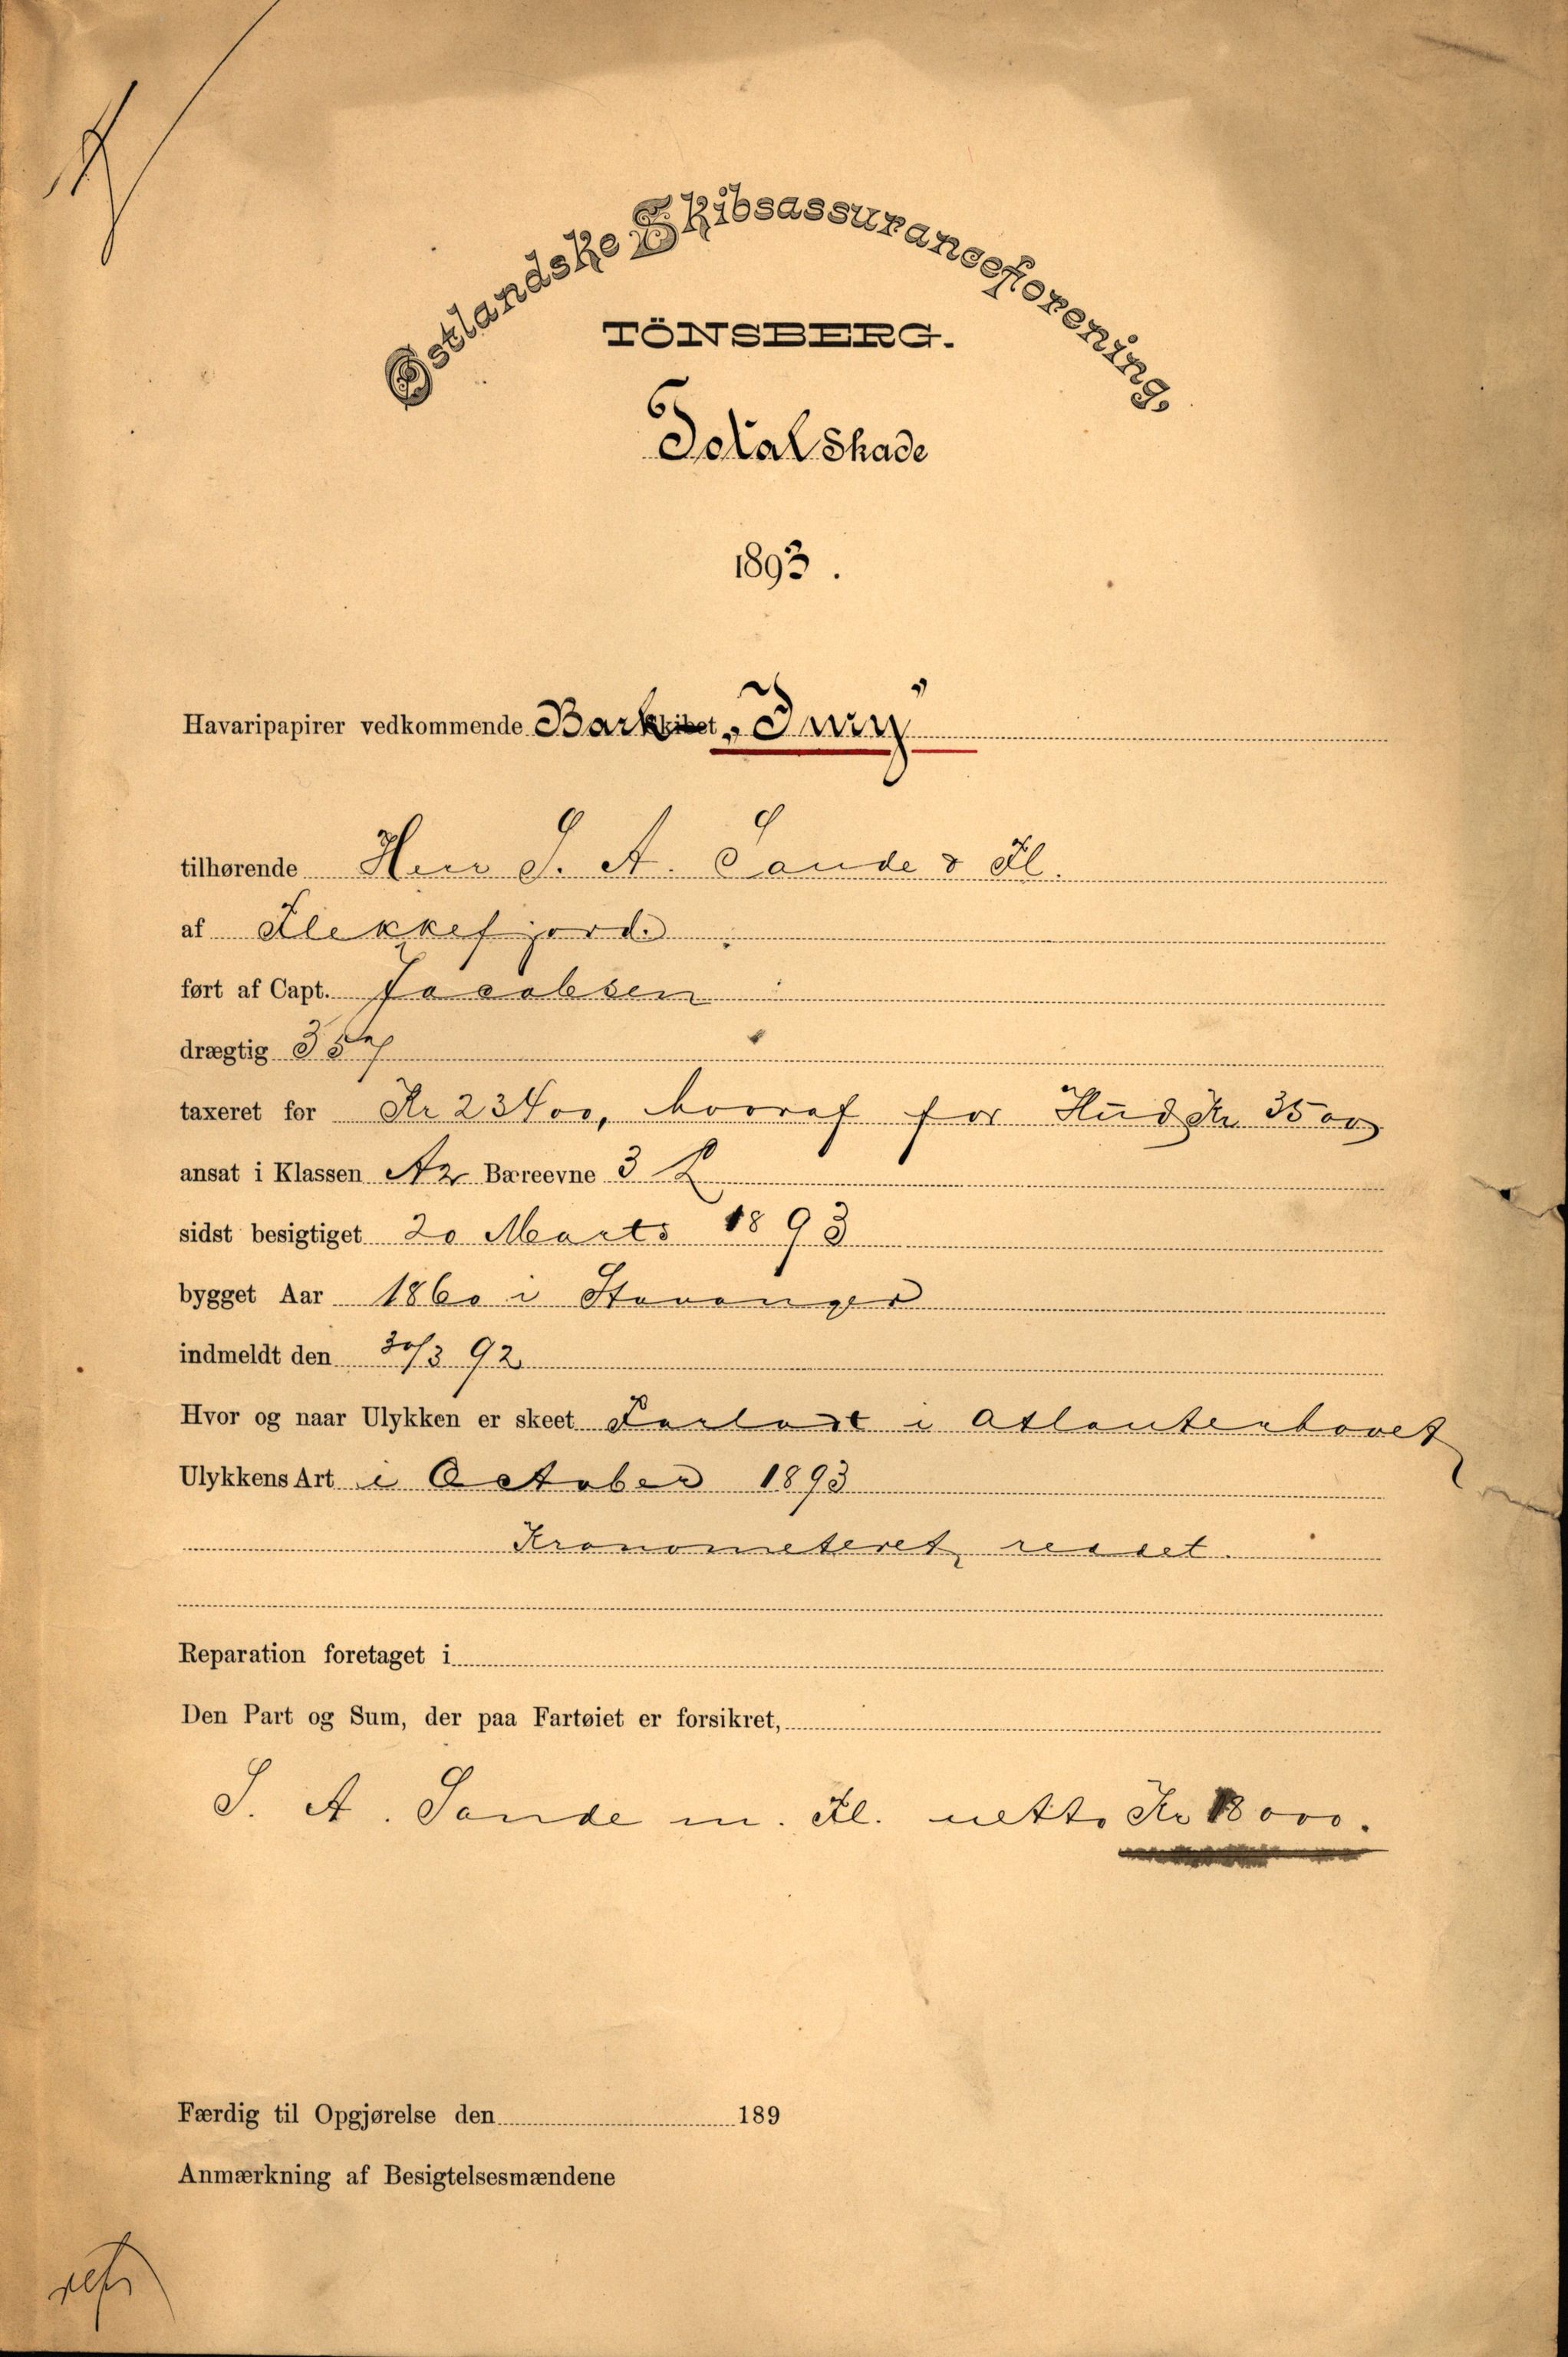 Østlandske Skibsassuranceforening,
TÖNSBERG.
Total Skade
1893.
Havaripapirer vedkommende Barkskibet „Juny"
tilhørende Herr S. A. Sande & Fl.
af Flekkefjord.
ført af Capt. Jacobsen
drægtig 357
taxeret for Kr 23400, hvoraf for Hud Kr 3500
ansat i Klassen A2 Bæreevne 3 L
sidst besigtiget 20 Marts 1893
bygget Aar 1860 i Stavanger
indmeldt den 30/3 92
Hvor og naar Ulykken er skeet Forladt i Atlanterhavet
Ulykkens Art i October 1893
Kronometeret reddet.
Reparation foretaget i
Den Part og Sum, der paa Fartøiet er forsikret,
S. A. Sande m. Fl. netto Kr 18000.
Færdig til Opgjørelse den 189
Anmærkning af Besigtelsesmændene